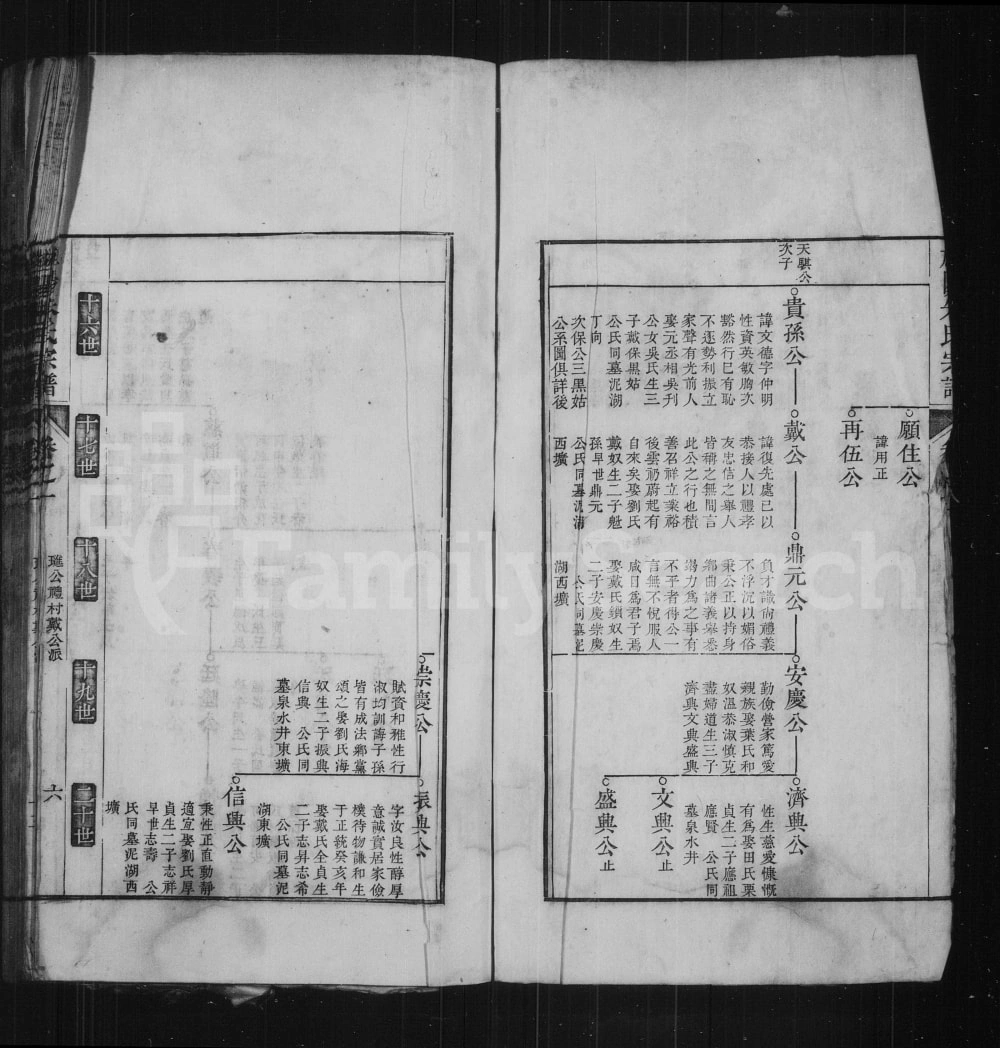 願住公
諱用正
再伍公
天騏公
次子
貴孫公
諱文德字仲明
性資英敏胸次
豁然行巳有恥
不逐勢利振立
家聲有光前人
娶元丞相吳刋
公女吳氏生三
子戴保黑姑
公氏同墓泥湖
丁向
次保公三黑姑
公系圖俱詳後
戴公
諱復先處己以
恭接人以禮孝
友忠信之舉人
皆稱之無間言
此公之行也積
善召祥立業裕
後雲礽蔚起有
自來矣娶劉氏
戴奴生二子魁
孫早世鼎元
公氏同墓泥湖
西壙
鼎元公
負才識尚禮義
不浮沉以媚俗
秉公正以持身
鄉曲諸義舉悉
竭力為之事有
不平者得公一
言無不悅服人
咸目為君子焉
娶戴氏鎖奴生
二子安慶崇慶
公氏同墓泥
湖西壙
安慶公
勤儉營家篤愛
親族娶葉氏和
奴溫恭淑慎克
盡婦道生三子
濟興文興盛興
濟興公
性生慈愛慷慨
有為娶田氏栗
貞生二子應祖
應賢 公氏同
墓泉水井
文興公止
盛興公止
崇慶公
賦資和雅性行
淑均訓誨子孫
皆有成法鄉黨
頌之娶劉氏海
奴生二子振興
信興 公氏同
墓泉水井東壙
振興公
字汝良性醇厚
意誠實居家儉
樸待物謙和生
于正統癸亥年
娶戴氏全貞生
二子志昇志希
公氏同墓泥
湖東壙
信興公
秉性正直動靜
適宜娶劉氏厚
貞生二子志祥
早世志壽 公
氏同墓泥湖西
壙
十六世
十七世
十八世
十九世
二十世
氏宗譜
卷之一
璡公體村戴公派
六
FamilySearch